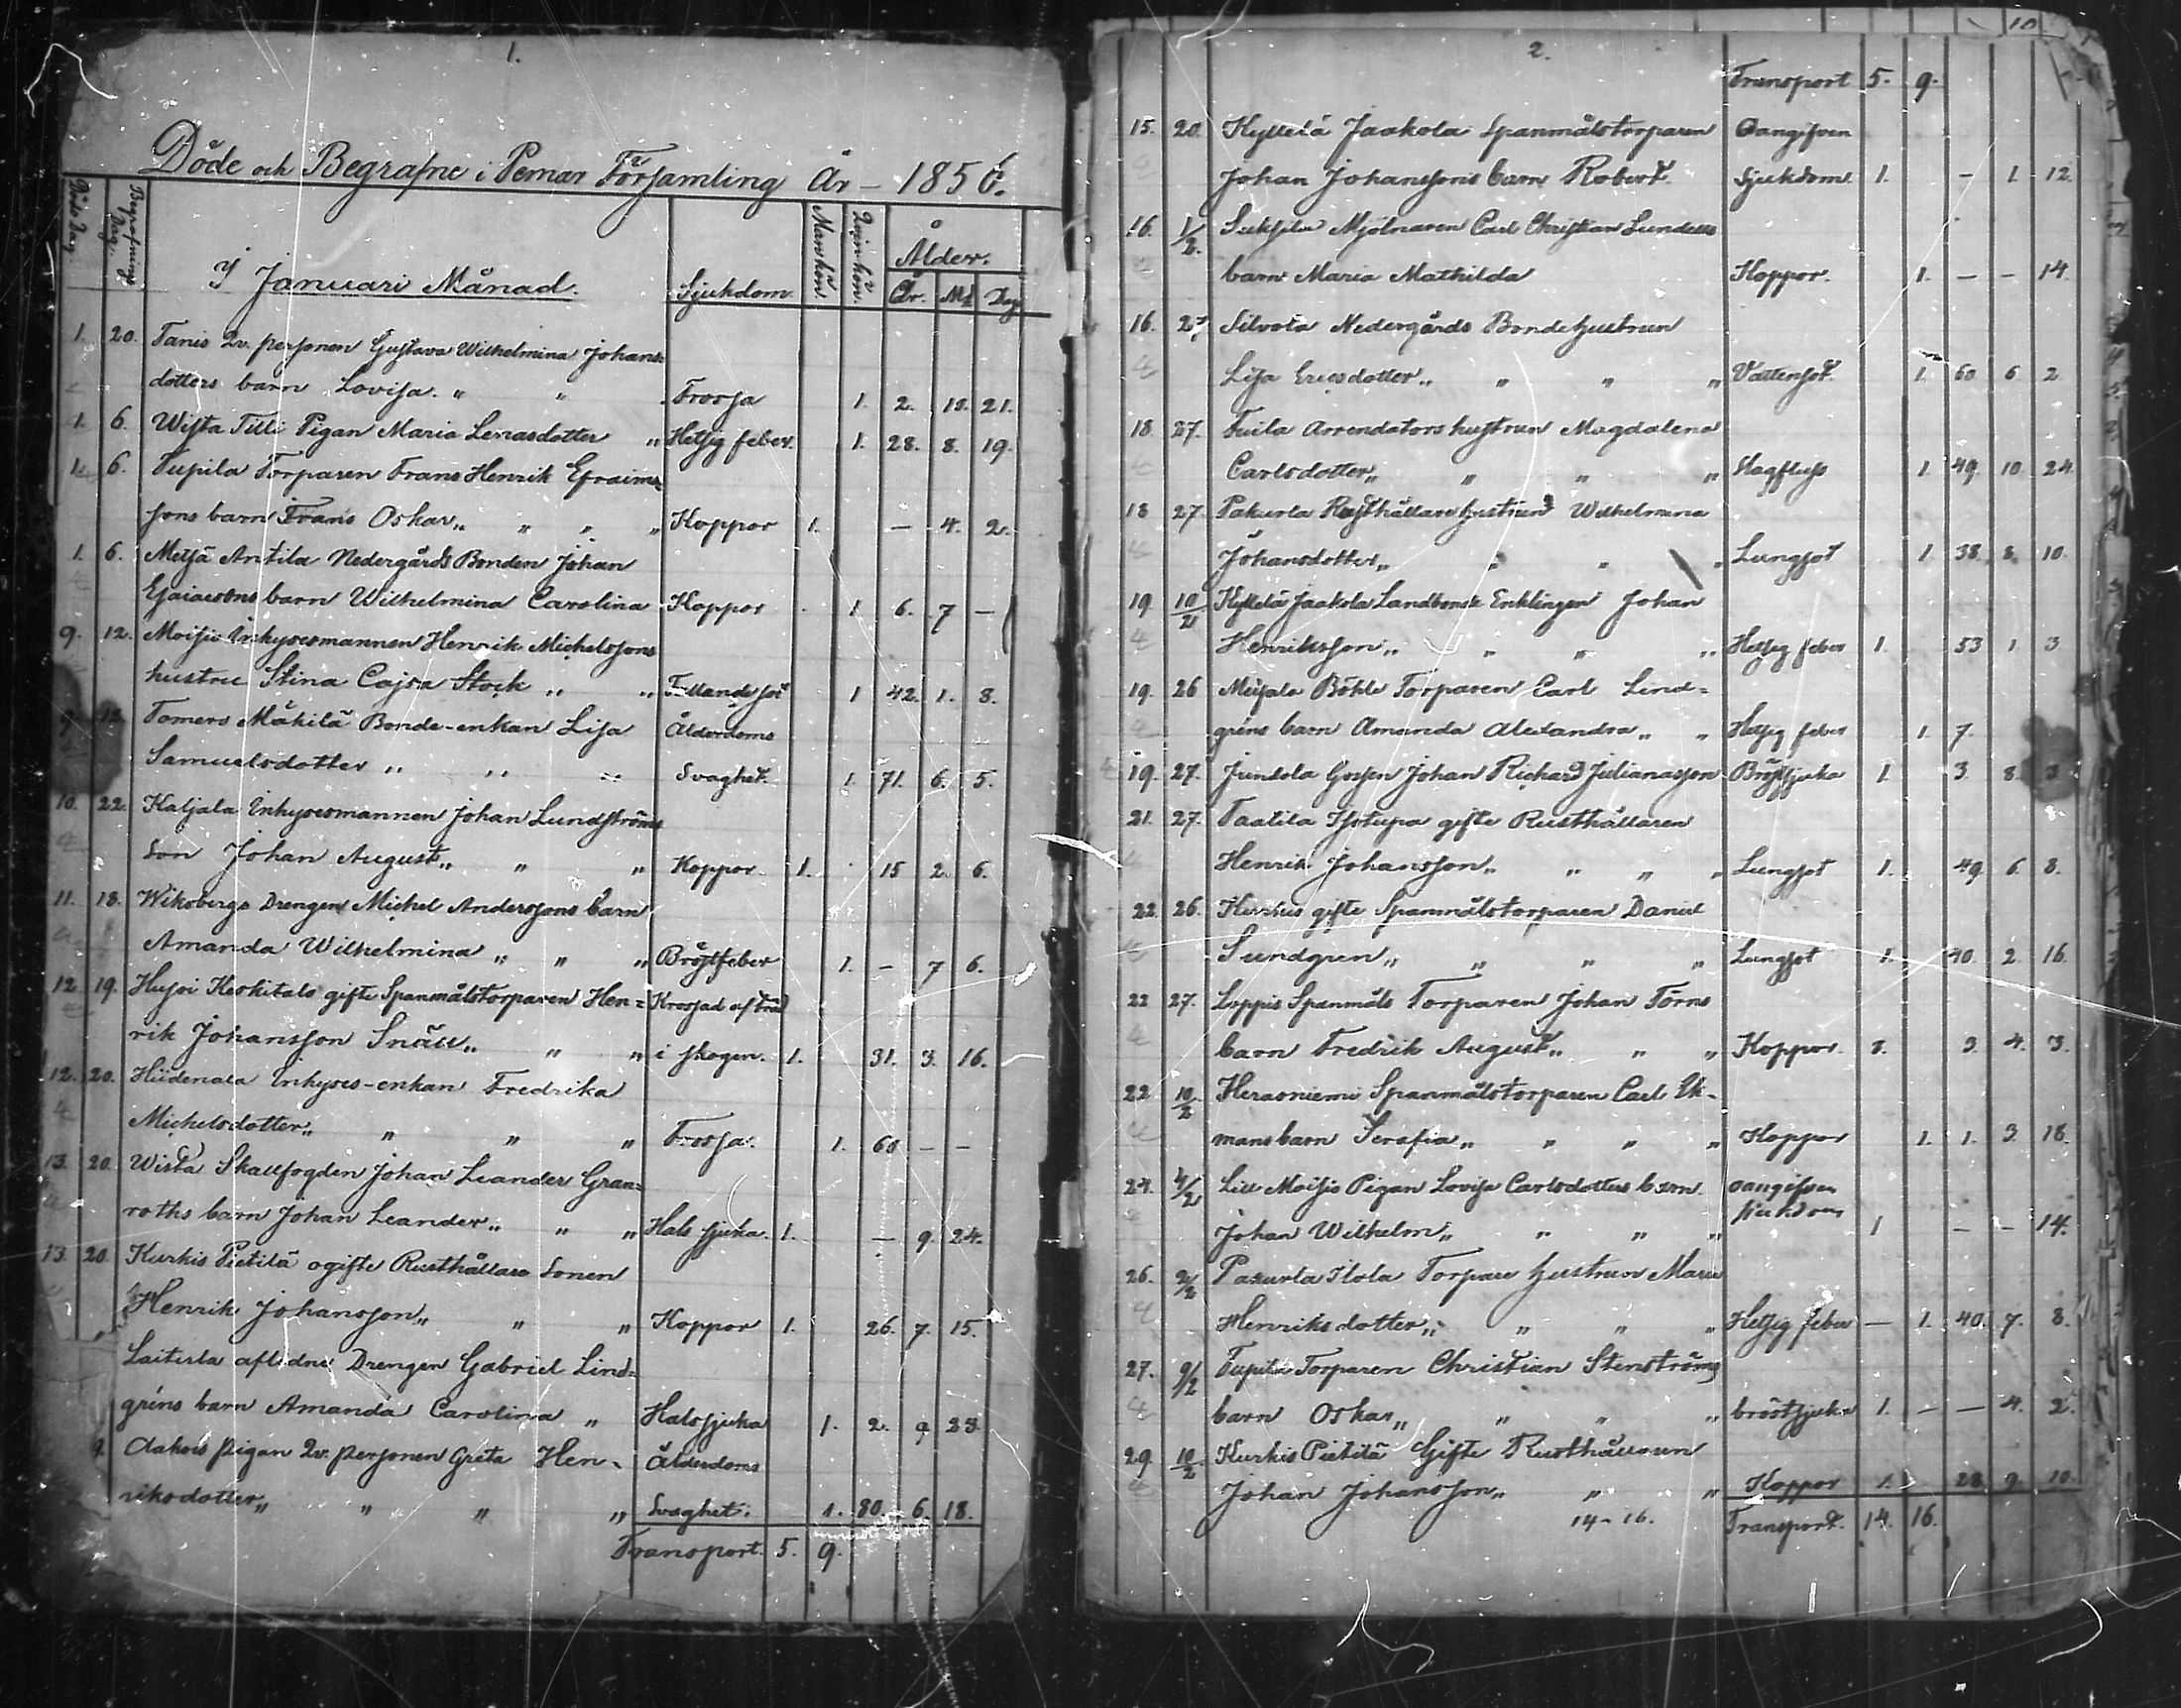 1.
Döde och Begrafne i Pemar Församling År - 1856.
Döds Dag. Begrafnings Dag. I Januari Månad. Sjukdom. Mankön. Qvinkön. Ålder. År. Md. Dag
1. 20. Tanis Qv. personen Gustava Wilhelmina Johans-
dotters barn Lovisa. " " Trossa 1. 2. 18. 21.
1. 6. Wista Tilli Pigan Maria Lenasdotter " Hetsig feber. 1. 28. 8. 19.
1. 6. Tupila Torparen Frans Henrik Efraims-
sons barn Frans Oskar " " " " Koppor 1. — 4. 2.
1. 6. Metsä Antila Nedergårds Bonden Johan
Esaiaesons barn Wilhelmina Carolina Koppor 1. 6. 7 —
9. 12. Moisio Inhysesmannen Henrik Michelssons
hustru Stina Cajsa Stock " " 1 42. 1. 8.
9 13. Tomero Mäkilä Bonde-enkan Lisa Ålderdoms
Samuelsdotter " " " Svaghet. 1. 71. 6. 5.
10. 22. Kaljala Inhysesmannen Johan Lundströms
son Johan August " " " Koppor. 1. 15 2. 6.
11. 18. Wiksbergs Drengen Michel Anderssons barn
Amanda Wilhelmina " " " Bröstfeber 1. — 7 6.
12. 19. Husoi Keskitalo gifte Spanmålstorparen Hen= Krossad af träd
rik Johansson Snäll " " " i skogen. 1. 31. 3. 16.
12. 20. Hiidenala Inhyses-enkan Fredrika
Michelsdotter " " " " Trossa. 1. 60 — —
13. 20. Wista Skallfogden Johan Leander Gran=
roths barn Johan Leander " " " Hals sjuka. 1. — 9. 24.
13. 20. Kurkis Pietilä ogifte Rusthållare Sonen
Henrik Johansson " " " Koppor 1. 26. 7. 15.
Laiterla aflidne Drengen Gabriel Lind=
gréns barn Amanda Carolina " Halssjuka 1. 2. 9 23.
9. pigan Qv. personen Greta Hen- Ålderdoms
riksdotter " " " " Svaghet. 1. 80. 6. 18.
Transport. 5. 9.
10
2.
Transport 5. 9.
15. 20. Kyttelä Jaakola Spanmålstorparen Oangifven
Johan Johanssons barn Robert. Sjukdom. 1. — 1. 12.
16. 1/2. Mjölnaren Carl Christian Lundells
barn Maria Mathilda Koppor. 1. — — 14.
16. 27. Silvola Nedergårds Bondehustrun
Lisa Ericsdotter " " " " Vattensot. 1. 60 6 2
18. 27. Tuila Arrendatorshustrun Magdalena
Carlsdotter " " " " Slagfluss 1. 49. 10. 24
18 27. Pakurla Rusthållarehustrun Wilhelmina
Johansdotter " " " " Lungsot 1. 38. 8. 10.
19 10/2 Kyttelä Jaakola Landbonde Enklingen Johan
Henriksson " " " " Hetsig feber 1. 53 1 3
19. 26 Böhle Torparen Carl Lind=
gréns barn Amanda Alexandra " " Hetsig feber 1. 7.
19. 27. Juntola Gossen Johan Richard Julianasson Bröstsjuka 1. 3. 8. 3.
21. 27. Taatila Isotupa gifte Rusthållaren
Henrik Johansson " " " " Lungsot 1. 49 6. 8.
22. 26. Kurkis gifte Spanmålstorparen Daniel
Sundgren " " " " Lungsot 1. 40. 2. 16.
22 27. Loppis Spanmåls Torparen Johan Törns
barn Fredrik August " " " Koppor. 1. 3. 4. 3.
22 10/2 Heraoniemi Spanmålstorparen Carl Ek-
mans barn Serafia " " " " Koppor 1. 1. 3. 18.
24. 4/2 Lill Moisio Pigan Lovisa Carlsdotters barn oangifven
Johan Wilhelm " " " " sjukdom 1 — — 14.
26. 2/2 Pakurla Ilola Torpare hustrun Maria
Henriksdotter " " " " Hetsig feber — 1. 40. 7. 8.
27. 9/2 Tupila Torparen Christian Stenströms
barn Oskar " " " " bröstsjuka 1. — — 4. 2.
29. 10/2. Kurkis Pietilä Gifte Rusthållaren
Johan Johansson " " " Koppor 1. 28 9. 10.
14 - 16. Transport. 14. 16.